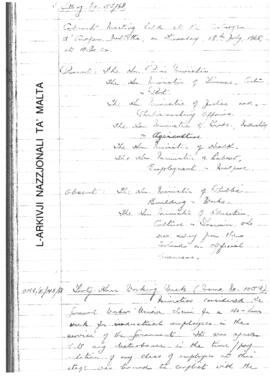 Meeting No. 52/68
Cabinet Meeting held at the Auberge
d'Aragon, Valletta, on Thursday 18th July 1968,
at
Present: The Hon. Prime Minister
The Hon Minister of Finance,
The Hon Minister of Justice and
Parliamentary Affairs
The Hon Minister of Trade, Industry
& Agriculture
The Hon Minister of Health
The Hon Minister of Labour,
Employment & Welfare
Absent: The Hon Minister of Public
Building & Works
The Hon Minister of Education,
Culture & Tourism who
are away from these
Islands on official
business.
L-ARKIVJI NAZZJONALI TA' MALTA
Forty-Hour Working Week (Memo No.
Ministers considered the
General Workers' Union claim for a 40-hour
week for industrial employees in the
service of the Government. It was agreed
that any
of any class of employees at this
stage was bound to conflict with the